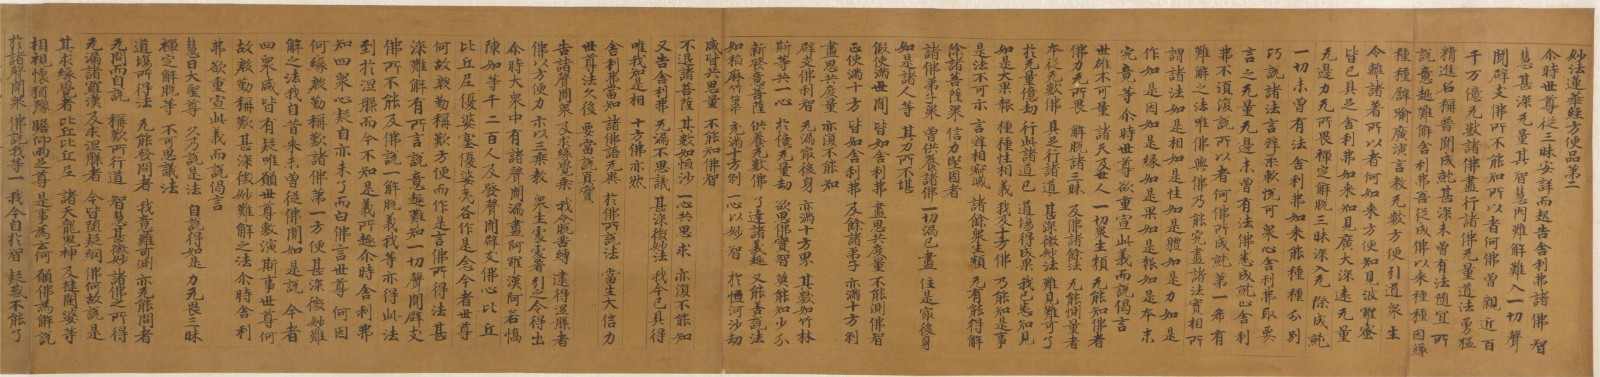 妙法蓮華經方便品第二
尒時世尊從三昧安詳而起告舍利弗諸佛智
慧甚深无量其智慧門難解難入一切聲
聞辟支佛所不能知所以者何佛曾親近百
千万億无數諸佛盡行諸佛无量道法勇猛
精進名稱普聞成就甚深未曾有法隨宜所
說意趣難解舍利弗吾從成佛以來種種因緣
種種譬喻廣演言教无數方便引道衆生
令離諸著所以者何如來方便知見波羅蜜
皆已具足舍利弗如來知見廣大深遠无量
无邊力无所畏禪定解脫三昧深入无際成就
一切未曾有法舍利弗如來能種種分別
巧說諸法言辭柔軟悅可衆心舍利弗取要
言之无量无邊未曾有法佛悉成就止舍利
弗不須復說所以者何佛所成就第一希有
難解之法唯佛與佛乃能究盡諸法實相所
謂諸法如是相如是性如是體如是力如是
作如是因如是緣如是果如是報如是本末
究竟等尒時世尊欲重宣此義而說偈言
世雄不可量 諸天及世人 一切衆生類 无能知佛者
佛力无所畏 解脫諸三昧 及佛諸餘法 无能測量者
本從无數佛 具足行諸道 甚深微妙法 難見難可了
於无量億劫 行此諸道已 道場得成果 我已悉知見
如是大果報 種種性相義 我及十方佛 乃能知是事
是法不可示 言辭相寂滅 諸餘衆生類 无有能得解
除諸菩薩衆 信力堅固者
諸佛弟子衆 曾供養諸佛 一切漏已盡 住是最後身
如是諸人等 其力所不堪
假使滿世間 皆如舍利弗 盡思共度量 不能測佛智
正使滿十方 皆如舍利弗 及餘諸弟子 亦滿十方刹
盡思共度量 亦復不能知
辟支佛利智 无漏最後身 亦滿十方界 其數如竹林
斯等共一心 於億无量劫 欲思佛實智 莫能知少分
新發意菩薩 供養无數佛 了達諸義趣 又能善說法
如稻麻竹葦 充滿十方刹 一心以妙智 於恒河沙劫
咸皆共思量 不能知佛智
不退諸菩薩 其數如恒沙 一心共思求 亦復不能知
又告舍利弗 无漏不思議 甚深微妙法 我今已具得
唯我知是相 十方佛亦然
舍利弗當知 諸佛語无異 於佛所說法 當生大信力
世尊法久後 要當說真實
告諸聲聞衆 及求緣覺乘 我令脫苦縛 逮得涅槃者
佛以方便力 示以三乘教 衆生處處著 引之令得出
尒時大衆中有諸聲聞漏盡阿羅漢阿若憍
陳如等千二百人及發聲聞辟支佛心比丘
比丘尼優婆塞優婆夷各作是念今者世尊
何故慇懃稱歎方便而作是言佛所得法甚
深難解有所言說意趣難知一切聲聞辟支
佛所不能及佛說一解脫義我等亦得此法
到於涅槃而今不知是義所趣尒時舍利弗
知四衆心疑自亦未了而白佛言世尊何因
何緣慇懃稱歎諸佛第一方便甚深微妙難
解之法我自昔來未曾從佛聞如是說今者
四衆咸皆有疑唯願世尊敷演斯事世尊何
故慇懃稱歎甚深微妙難解之法尒時舍利
弗欲重宣此義而說偈言
慧日大聖尊 久乃說是法 自說得如是 力无畏三昧
禪定解脫等 不可思議法
道場所得法 无能發問者 我意難可測 亦无能問者
无問而自說 稱歎所行道 智慧甚微妙 諸佛之所得
无漏諸羅漢 及求涅槃者 今皆墮疑網 佛何故說是
其求緣覺者 比丘比丘尼 諸天龍鬼神 及揵闥婆等
相相懷猶豫 瞻仰兩足尊 是事為云何 願佛為解說
於諸聲聞衆 佛說我第一 我今自於智 疑惑不能了